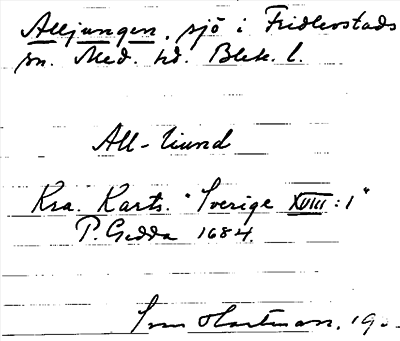 Alljungen, sjö i Fridlevstads
sn. Med. hd. Blek. l.
All-liund
Kra. Karts. "Sverige XVIII:1"
P. Gedda 1684.
Hartman, 19